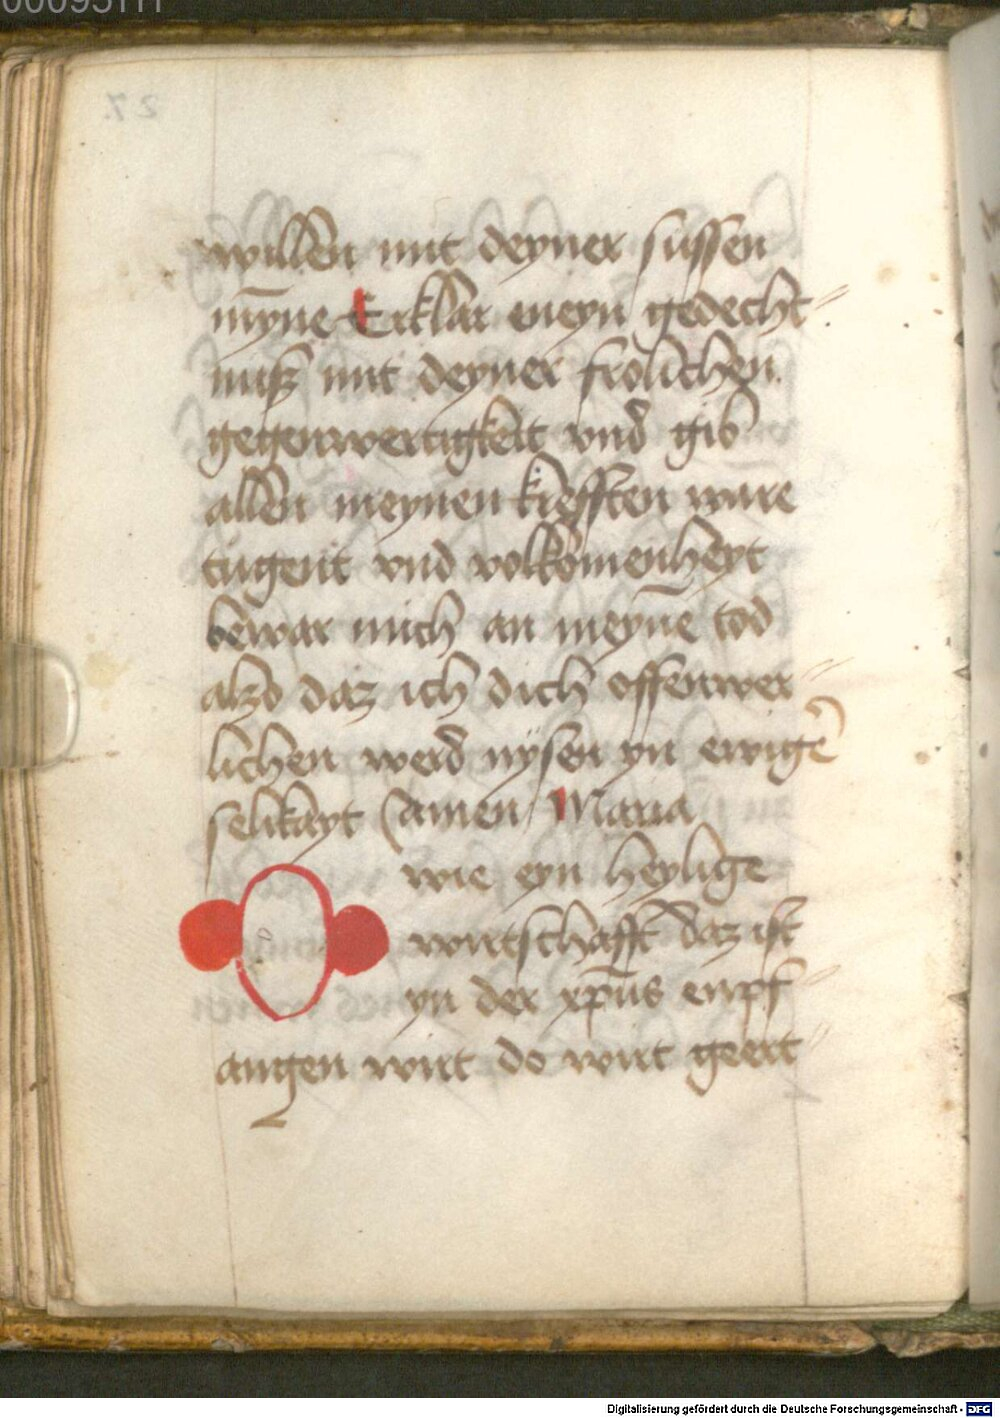 willen mit deyner sussen
mȳne Erklar meyn gedecht-
nuß mit deyner frolichen
gegenwertigkeit vnd gib
allen meynen krefften ware
tugent vnd volkomenheyt
bewar mich an meynē tod
also daz ich dich offenwer-
lichen werd nysen yn ewigē
selikayt Amen Maria
O wie eyn heylige
wirtschafft daz ist
yn der xpūs empf-
angen wirt do wirt geert-
Digitalisierung gefördert durch die Deutsche Forschungsgemeinschaft - DFG